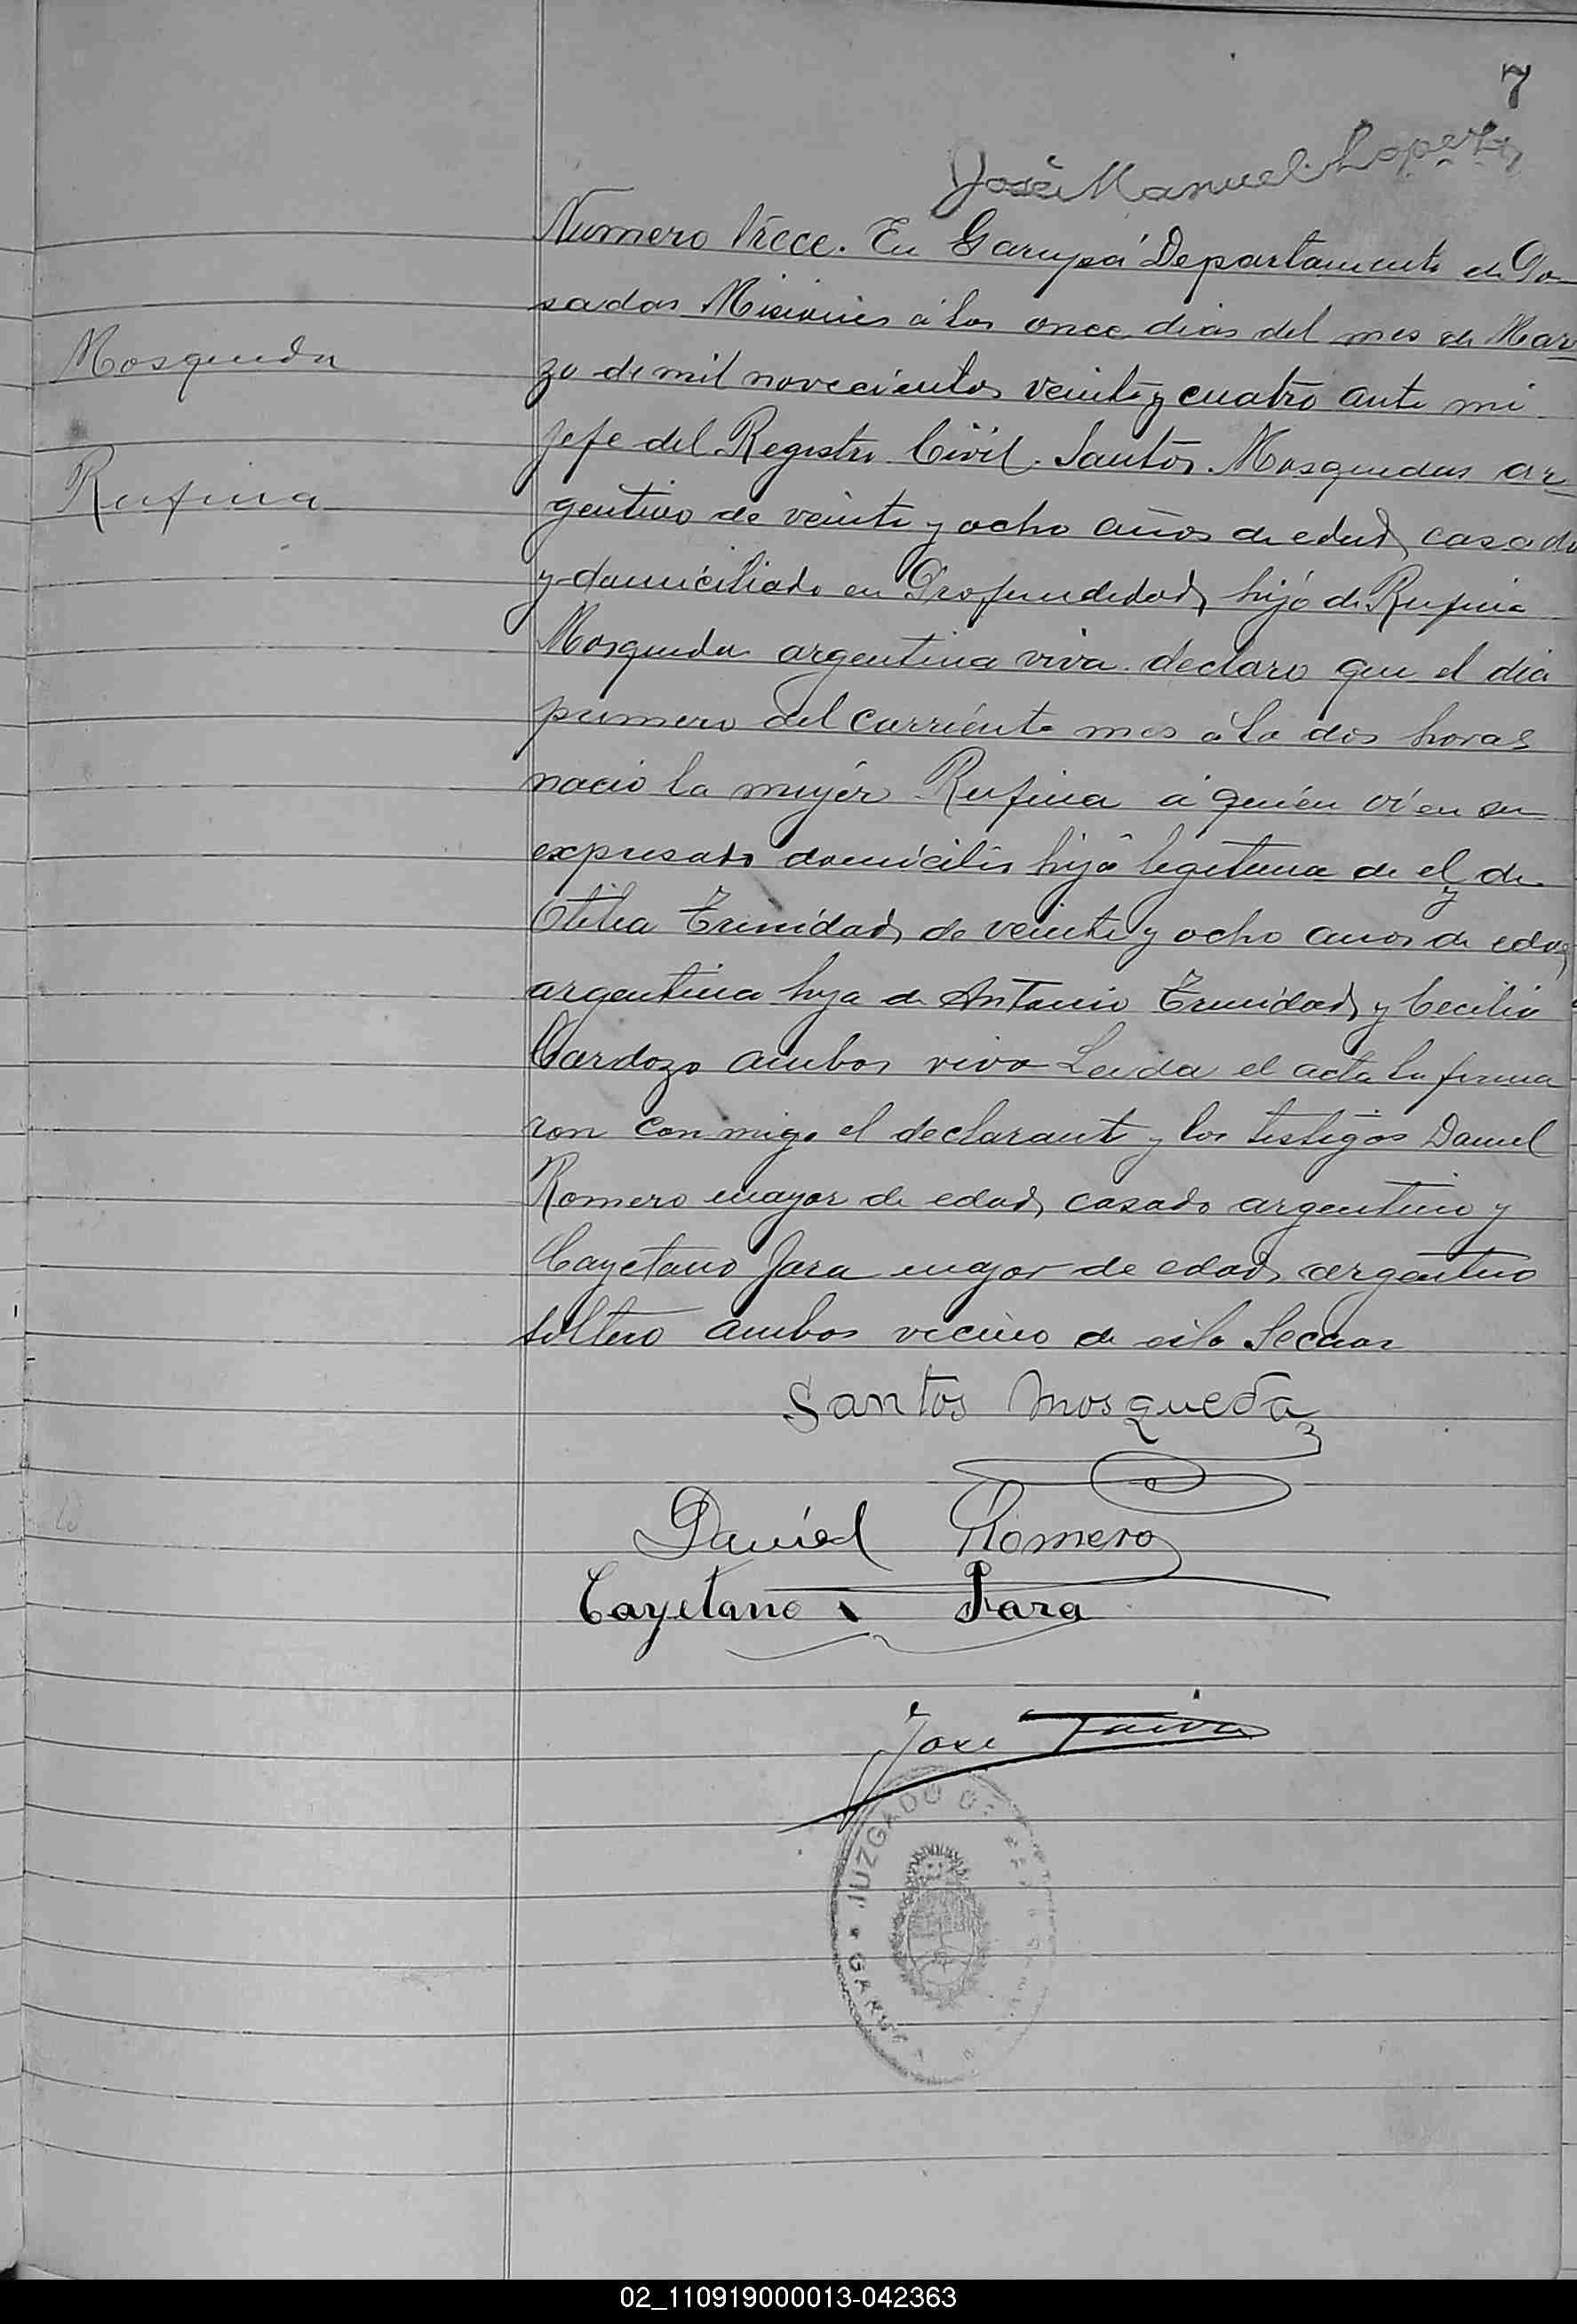 7
José Manuel Lopez
Numero trece. En Garupá Departamento de Po-
sadas Misiones á los once dias del mes de Mar-
zo de mil novecientos veinte y cuatro ante mi
Jefe del Registro Civil. Santos Mosquedas ar-
gentino de veinte y ocho años de edad, casado
y domiciliado en Profundidad, hijo de Rufina
Mosqueda argentina viva declaro que el dia
primero del corriente mes á la dos horas
nació la mujér Rufina á quien ví en su
expresado domicilio hija legitima de el y de
Otilia Trinidad, de veinte y ocho años de edad,
argentina hija de Antonio Trinidad, y Cecilia
Cardozo ambos vivo Leida el acta la firma
ron con migo el declarante y los testigos Daniel
Romero mayor de edad, casado argentino y
Cayetano Jara mayor de edad, argentino
soltero ambos vecino de esta Seccion
Mosqueda
Rufina
Santos Mosqueda
Daniel Romero
Cayetano Jara
Jose
JUZGADO DE PAZ
GARUPA
02_110919000013-042363